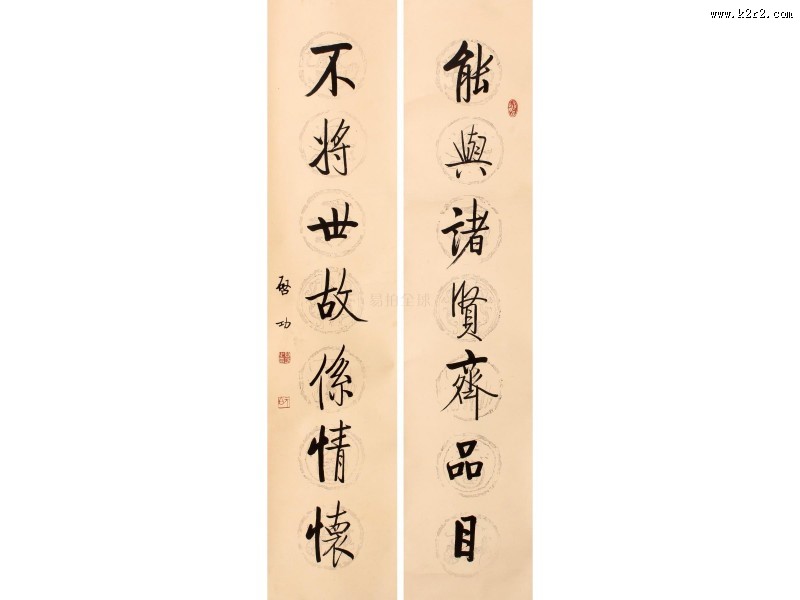 www.k2r2.com
能與諸賢齊品目
不將世故係情懷
啓功
易拍全球